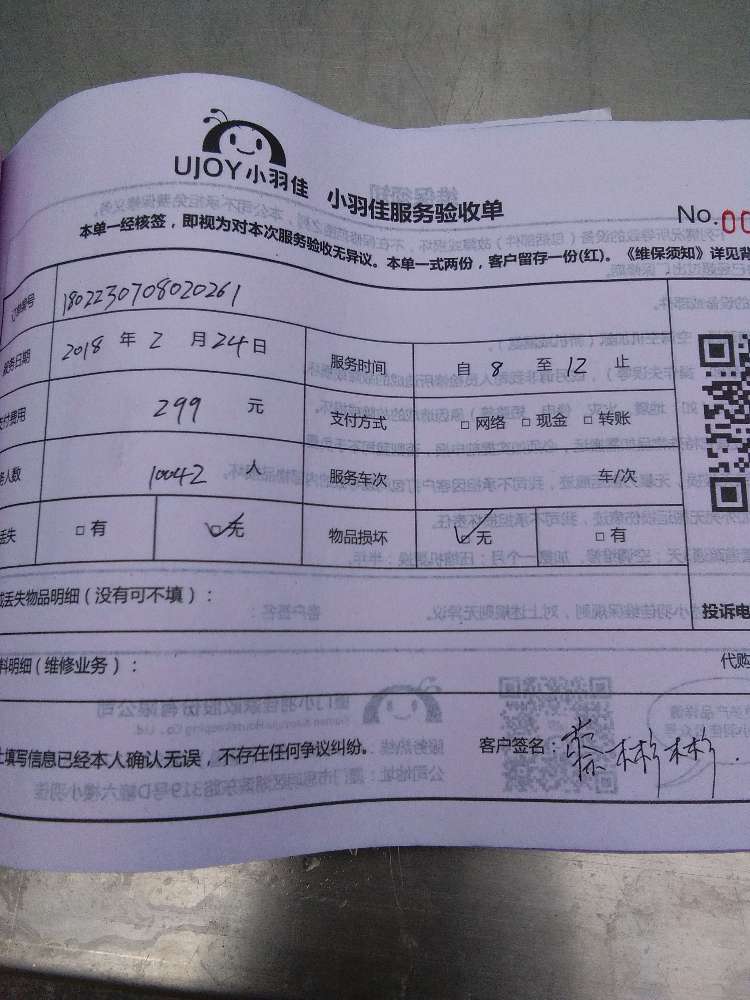 UJOY小羽佳 小羽佳服务验收单
No.00
本单一经核签，即视为对本次服务验收无异议。本单一式两份，客户留存一份(红)。《维保须知》详见背
订单编号 1802230708020261
服务日期 2018 年 2 月 24 日 服务时间 自 8 至 12 止
支付费用 299 元 支付方式 □ 网络 □ 现金 □ 转账
人数 10042 人 服务车次 车/次
丢失 □ 有 ☑ 无 物品损坏 ☑ 无 □ 有
丢失物品明细（没有可不填）：
投诉电
料明细（维修业务）：
代购
填写信息已经本人确认无误，不存在任何争议纠纷。 客户签名： 彬彬